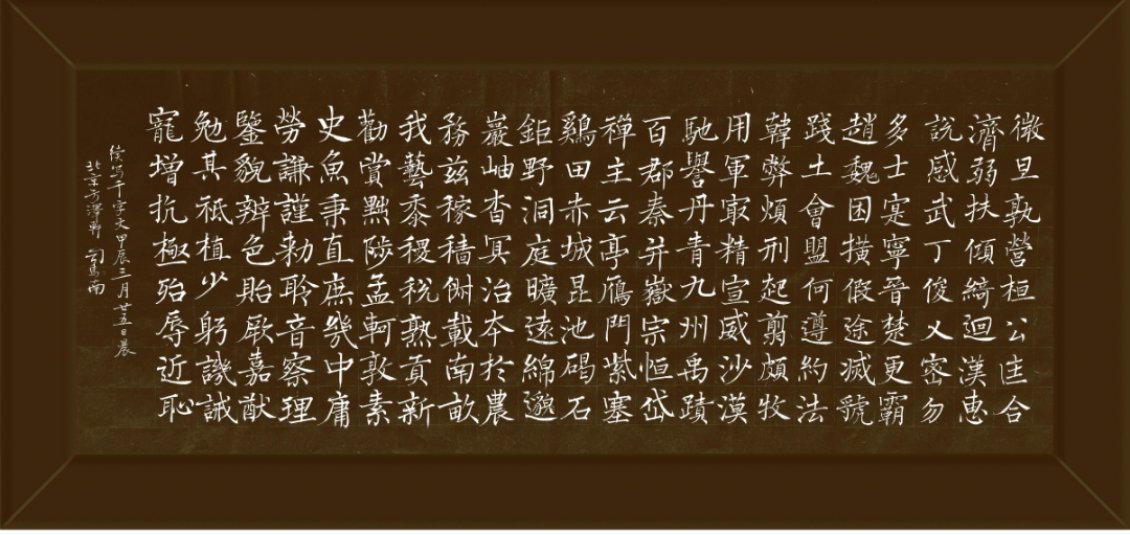 微旦孰營桓公匡合
濟弱扶傾綺迴漢惠
說感武丁俊乂密勿
多士寔寧晉楚更霸
趙魏困橫假途滅虢
踐土會盟何遵約法
韓弊煩刑起翦頗牧
用軍冣精宣威沙漠
馳譽丹青九州禹蹟
百郡秦并嶽宗恒岱
禪主云亭鴈門紫塞
鷄田赤城昆池碣石
鉅野洞庭曠遠綿邈
巖岫杳冥治夲於農
務茲稼穡俶載南畝
我藝黍稷稅熟貢新
勸賞黜陟孟軻敦素
史魚秉直庶幾中庸
勞謙謹勑聆音察理
鑒貌辨色貽厥嘉猷
勉其祗植少躬譏誡
寵增抗極殆辱近恥
千字文甲辰三月廿五日晨
北京方澤軒 司馬南